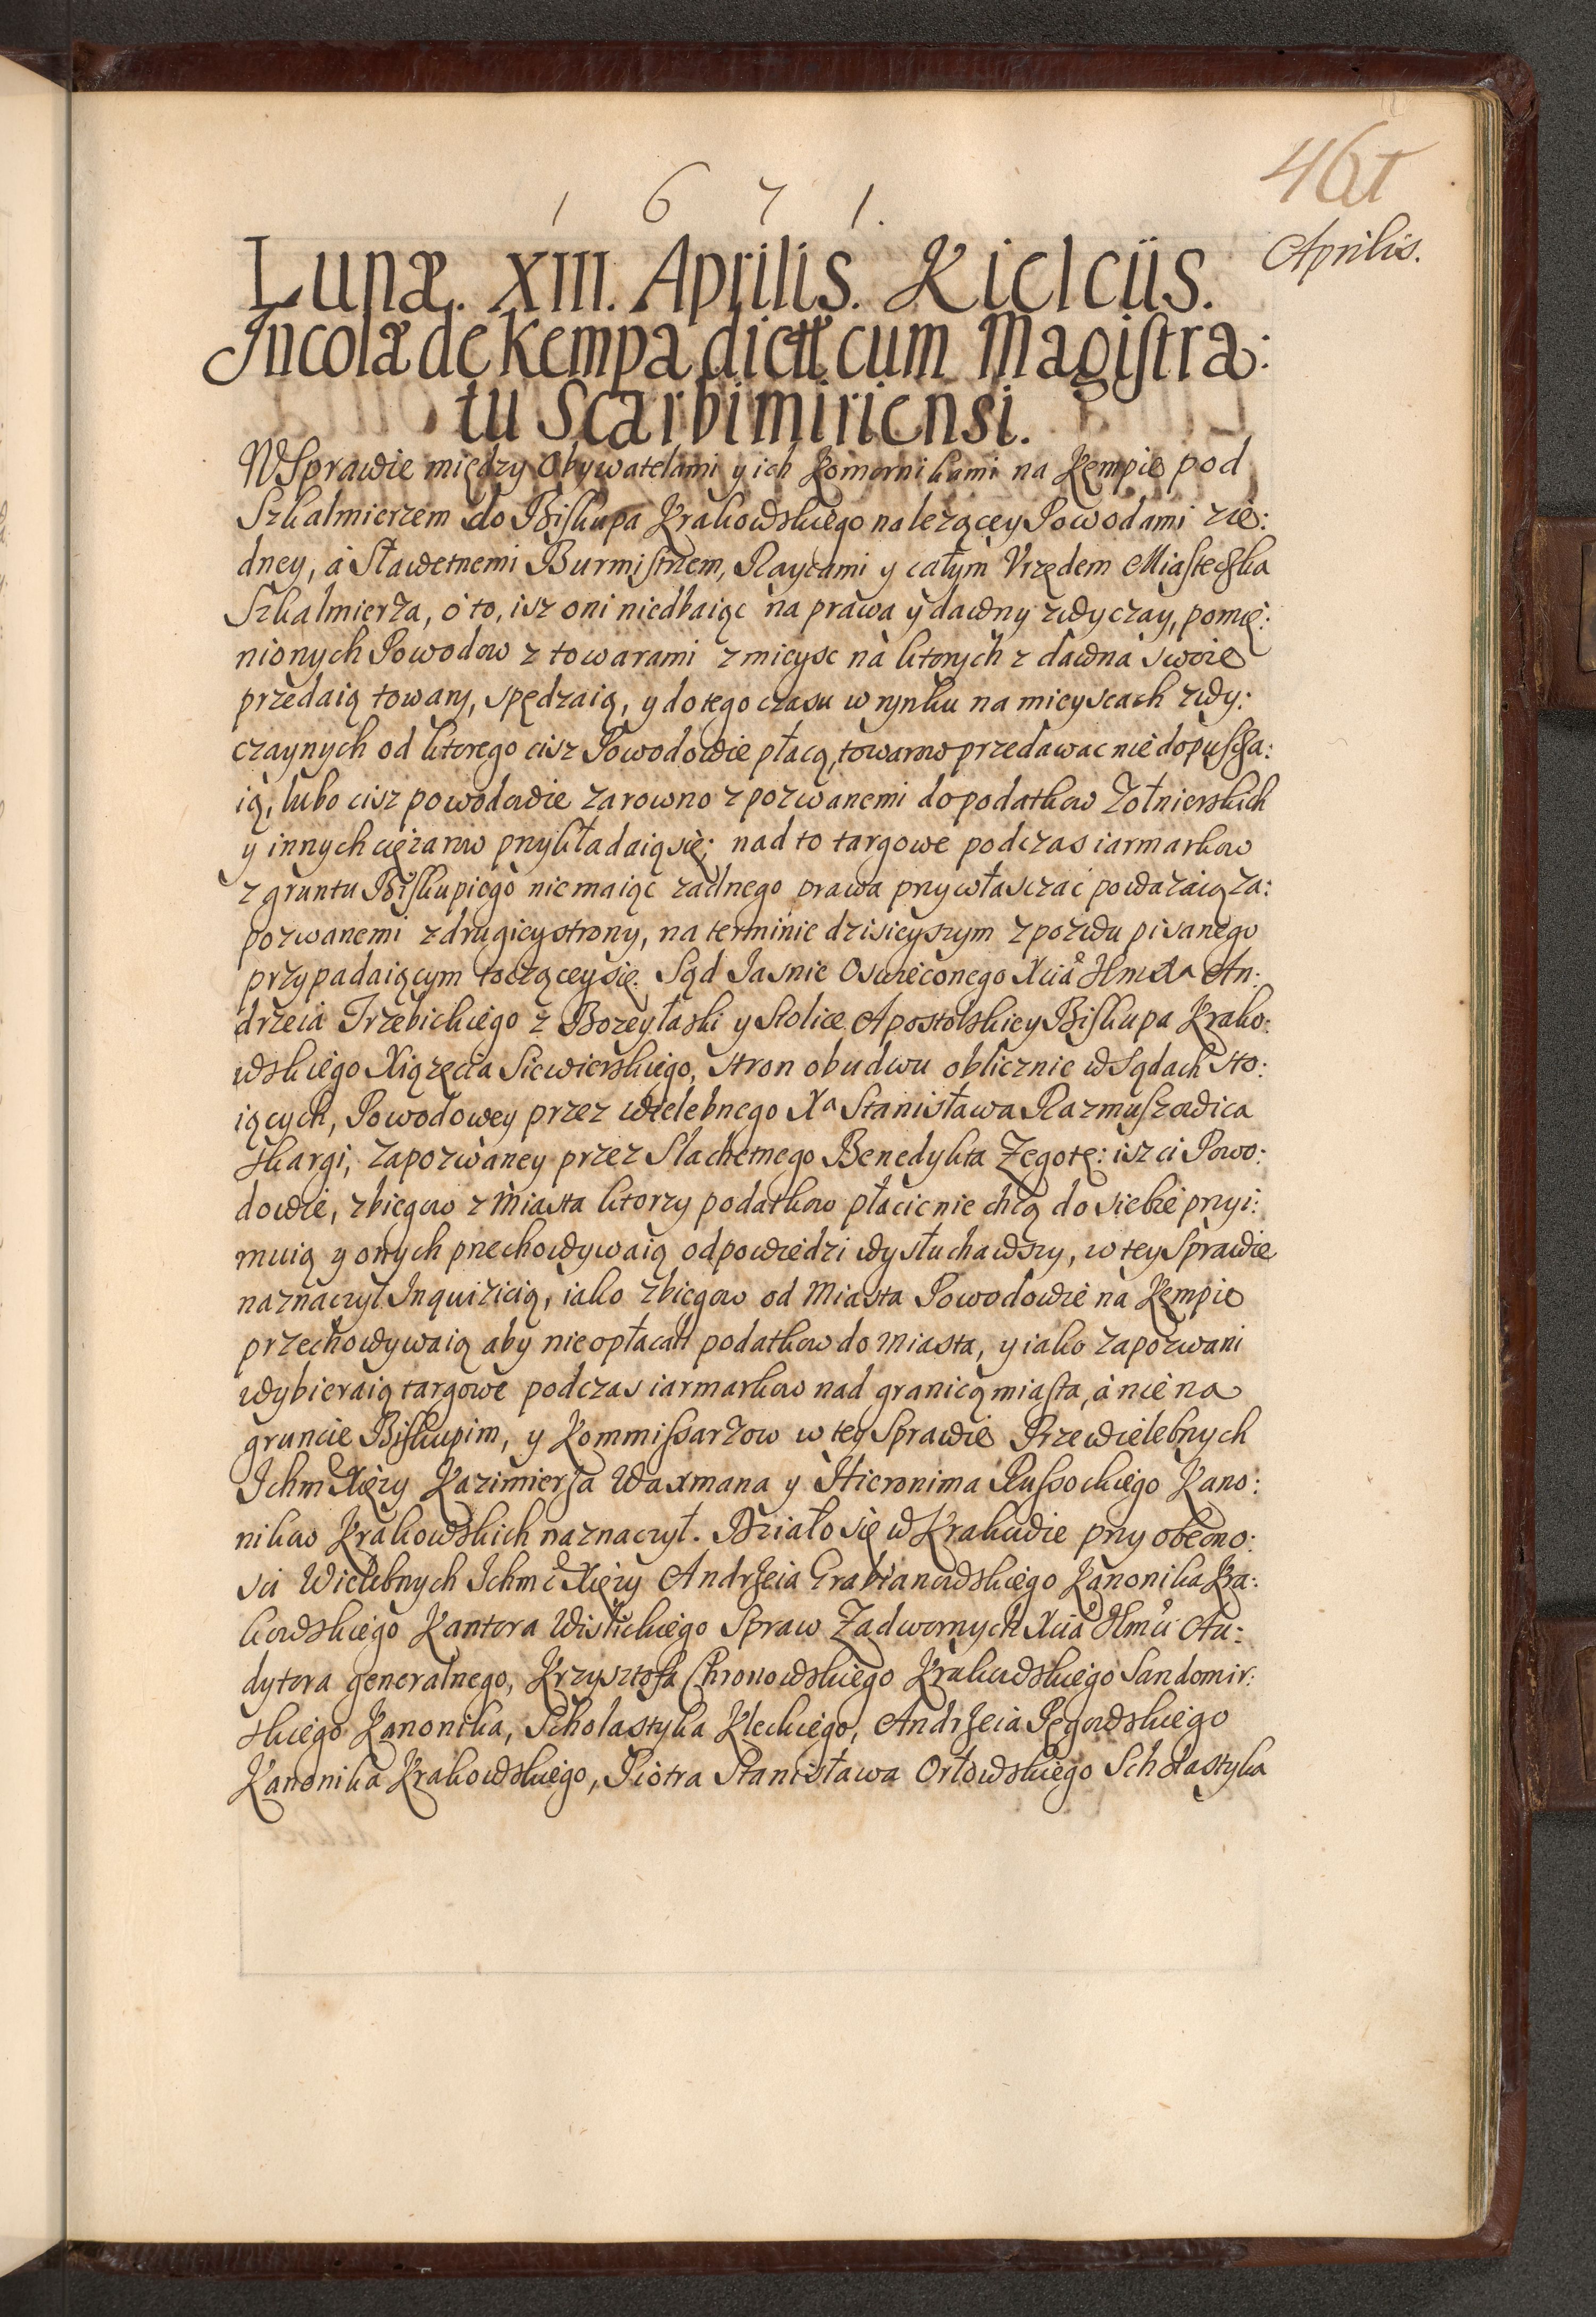 461
1 6 7 1.
Aprilis.
Lunæ. XIII. Aprilis. Kielciis.
Incolæ de Kempa dictæ cum Magistra:
tu Scarbimiriensi.
W Sprawie między Obywatelami y ich Komornikami na Kempie pod
Szkalmierzem do Biskupa Krakowskiego nalezącey Powodami zie:
dney, á Sławetnemi Burmistrzem, Raycami y całym Vrzędem Miasteczka
Szkalmierza, o to, isz oni niedbaiąc na prawa y dawny zwyczay, pomię:
nionych Powodow z towarami z mieysc na ktorych z dawna swoie
przedaią towary, spędzaią, y do tego czasu w rynku na mieyscach zwy:
czaynych od ktorego cisz Powodowie płacą, towarow przedawac nie dopuscza:
ią, lubo cisz powodowie zarowno z pozwanemi do podatkow Zołnierskich
y innych ciężarow przykładaią się; nad to targowe podczas iarmarkow
z gruntu Biskupiego nie maiąc zadnego prawa przywłasczać powazaią za:
pozwanemi z drugiey strony, na terminie dzisieyszym z pozwu pisanego
przypadaiącym toczącey się. Sąd Jasnie Oswieconego Xcia Jmci An:
drzeia Trzebickiego z Bozey łaski y Stolice Apostolskiey Biskupa Krako:
wskiego Xiązęcia Siewierskiego, Stron obudwu oblicznie w Sądach sto:
iących, Powodowey przez Wielebnego Xa Stanisława Razmuszowica
skargi, Zapozwaney przez Slachetnego Benedykta Zegotę: isz ci Powo:
dowie, zbiegow z Miasta ktorzy podatkow płacic nie chcą do siebie przyi:
muią y onych przechowywaią odpowiedzi wysłuchawszy, w tey Sprawie
naznaczył Inquizicią, iako zbiegow od Miasta Powodowie na Kempie
przechowywaią aby nie opłacali podatkow do Miasta, y iako zapozwani
wybieraią targowe podczas iarmarkow nad granicą miasta, á nie na
gruncie Biskupim, y Kommissarzow w tey Sprawie Przewielebnych
Ichm Xięzy Kazimierza Waxmana y Hieronima Russockiego Kano:
nikow Krakowskich naznaczył. Działo się w Krakowie przy obecno:
sci Wielebnych Ichmć Xięzy Andrzeia Grabianowskiego Kanonika Kra:
kowskiego Kantora Wislickiego Spraw Zadwornych Xcia Jmci Au:
dytora generalnego, Krzysztofa Chronowskiego Krakowskiego Sandomir:
skiego Kanonika, Scholastyka Kleckiego, Andrzeia Pęgowskiego
Kanonika Krakowskiego, Piotra Stanisława Orłowskiego Scholastyka